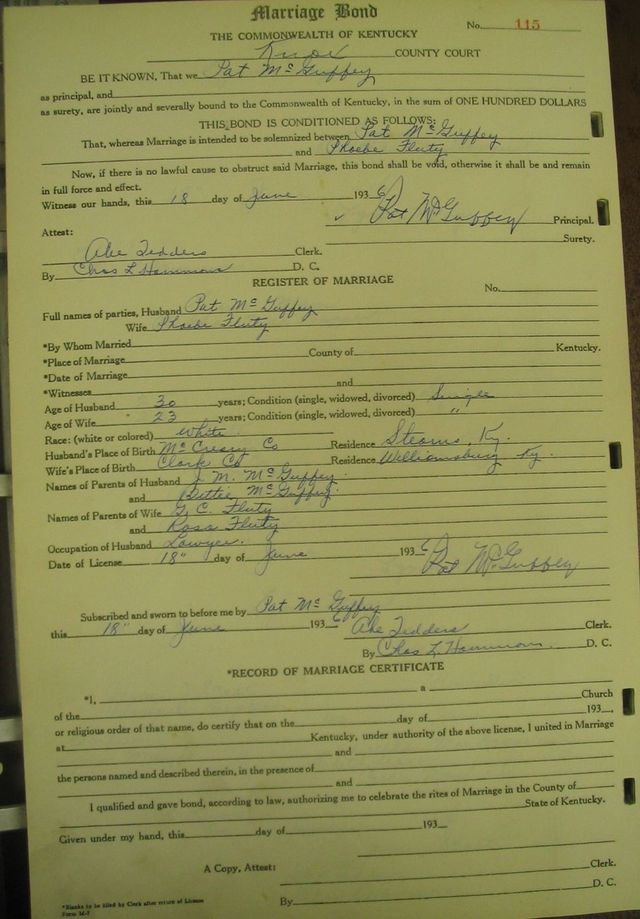 Marriage Bond
No. 115
THE COMMONWEALTH OF KENTUCKY
Knox COUNTY COURT
BE IT KNOWN, That we Pat McGuffey
as principal, and
as surety, are jointly and severally bound to the Commonwealth of Kentucky, in the sum of ONE HUNDRED DOLLARS
THIS BOND IS CONDITIONED AS FOLLOWS:
That, whereas Marriage is intended to be solemnized between Pat McGuffey
and Phoebe Fluty
Now, if there is no lawful cause to obstruct said Marriage, this bond shall be void, otherwise it shall be and remain
in full force and effect.
Witness our hands, this 18 day of June 1936
Pat McGuffey Principal.
Attest: Surety.
Abe Tedders Clerk.
By Chas L Hammons D. C.
REGISTER OF MARRIAGE
No.
Full names of parties, Husband Pat McGuffey
Wife Phoebe Fluty
*By Whom Married
*Place of Marriage County of Kentucky.
*Date of Marriage
*Witnesses and
Age of Husband 30 years; Condition (single, widowed, divorced) Single
Age of Wife 23 years; Condition (single, widowed, divorced) "
Race: (white or colored) white
Husband's Place of Birth McCreary Co Residence Stearns, Ky.
Wife's Place of Birth Clark Co Residence Williamsburg Ky.
Names of Parents of Husband M. McGuffey
and Bettie McGuffey.
Names of Parents of Wife G. C. Fluty
and Rosa Fluty
Occupation of Husband Lawyer.
Date of License 18" day of June 1936 Pat McGuffey
Subscribed and sworn to before me by Pat McGuffey
this 18" day of June 1936 Abe Tedders Clerk.
By Chas L Hammons. D. C.
*RECORD OF MARRIAGE CERTIFICATE
*I, a
of the Church
or religious order of that name, do certify that on the day of 193 ,
at Kentucky, under authority of the above license, I united in Marriage
and
the persons named and described therein, in the presence of
and
I qualified and gave bond, according to law, authorizing me to celebrate the rites of Marriage in the County of
State of Kentucky.
Given under my hand, this day of 193
A Copy, Attest: Clerk.
By D. C.
*Blanks to be filled by Clerk after return of License
Form M-7